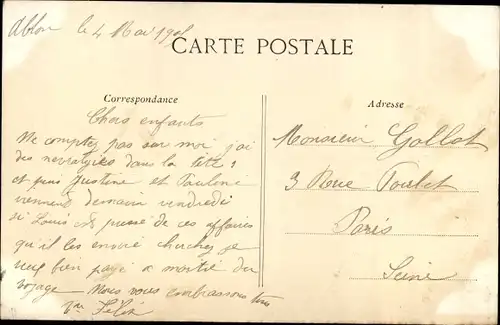 Ablon le 4 Mai 190
CARTE POSTALE
Correspondance
Adresse
Chers enfants
Ne comptez pas sur moi j'ai
des nevralgies dans la tete
et puis Justine et
viennent demain vendredi
si Louis est pressé de ces affaires
qu'il les envoie cherchez je
veux bien payé a moitie du
voyage Nous vous embrassons tous
Félix
Monsieur Gollot
3 Rue Toulet
Paris
Seine